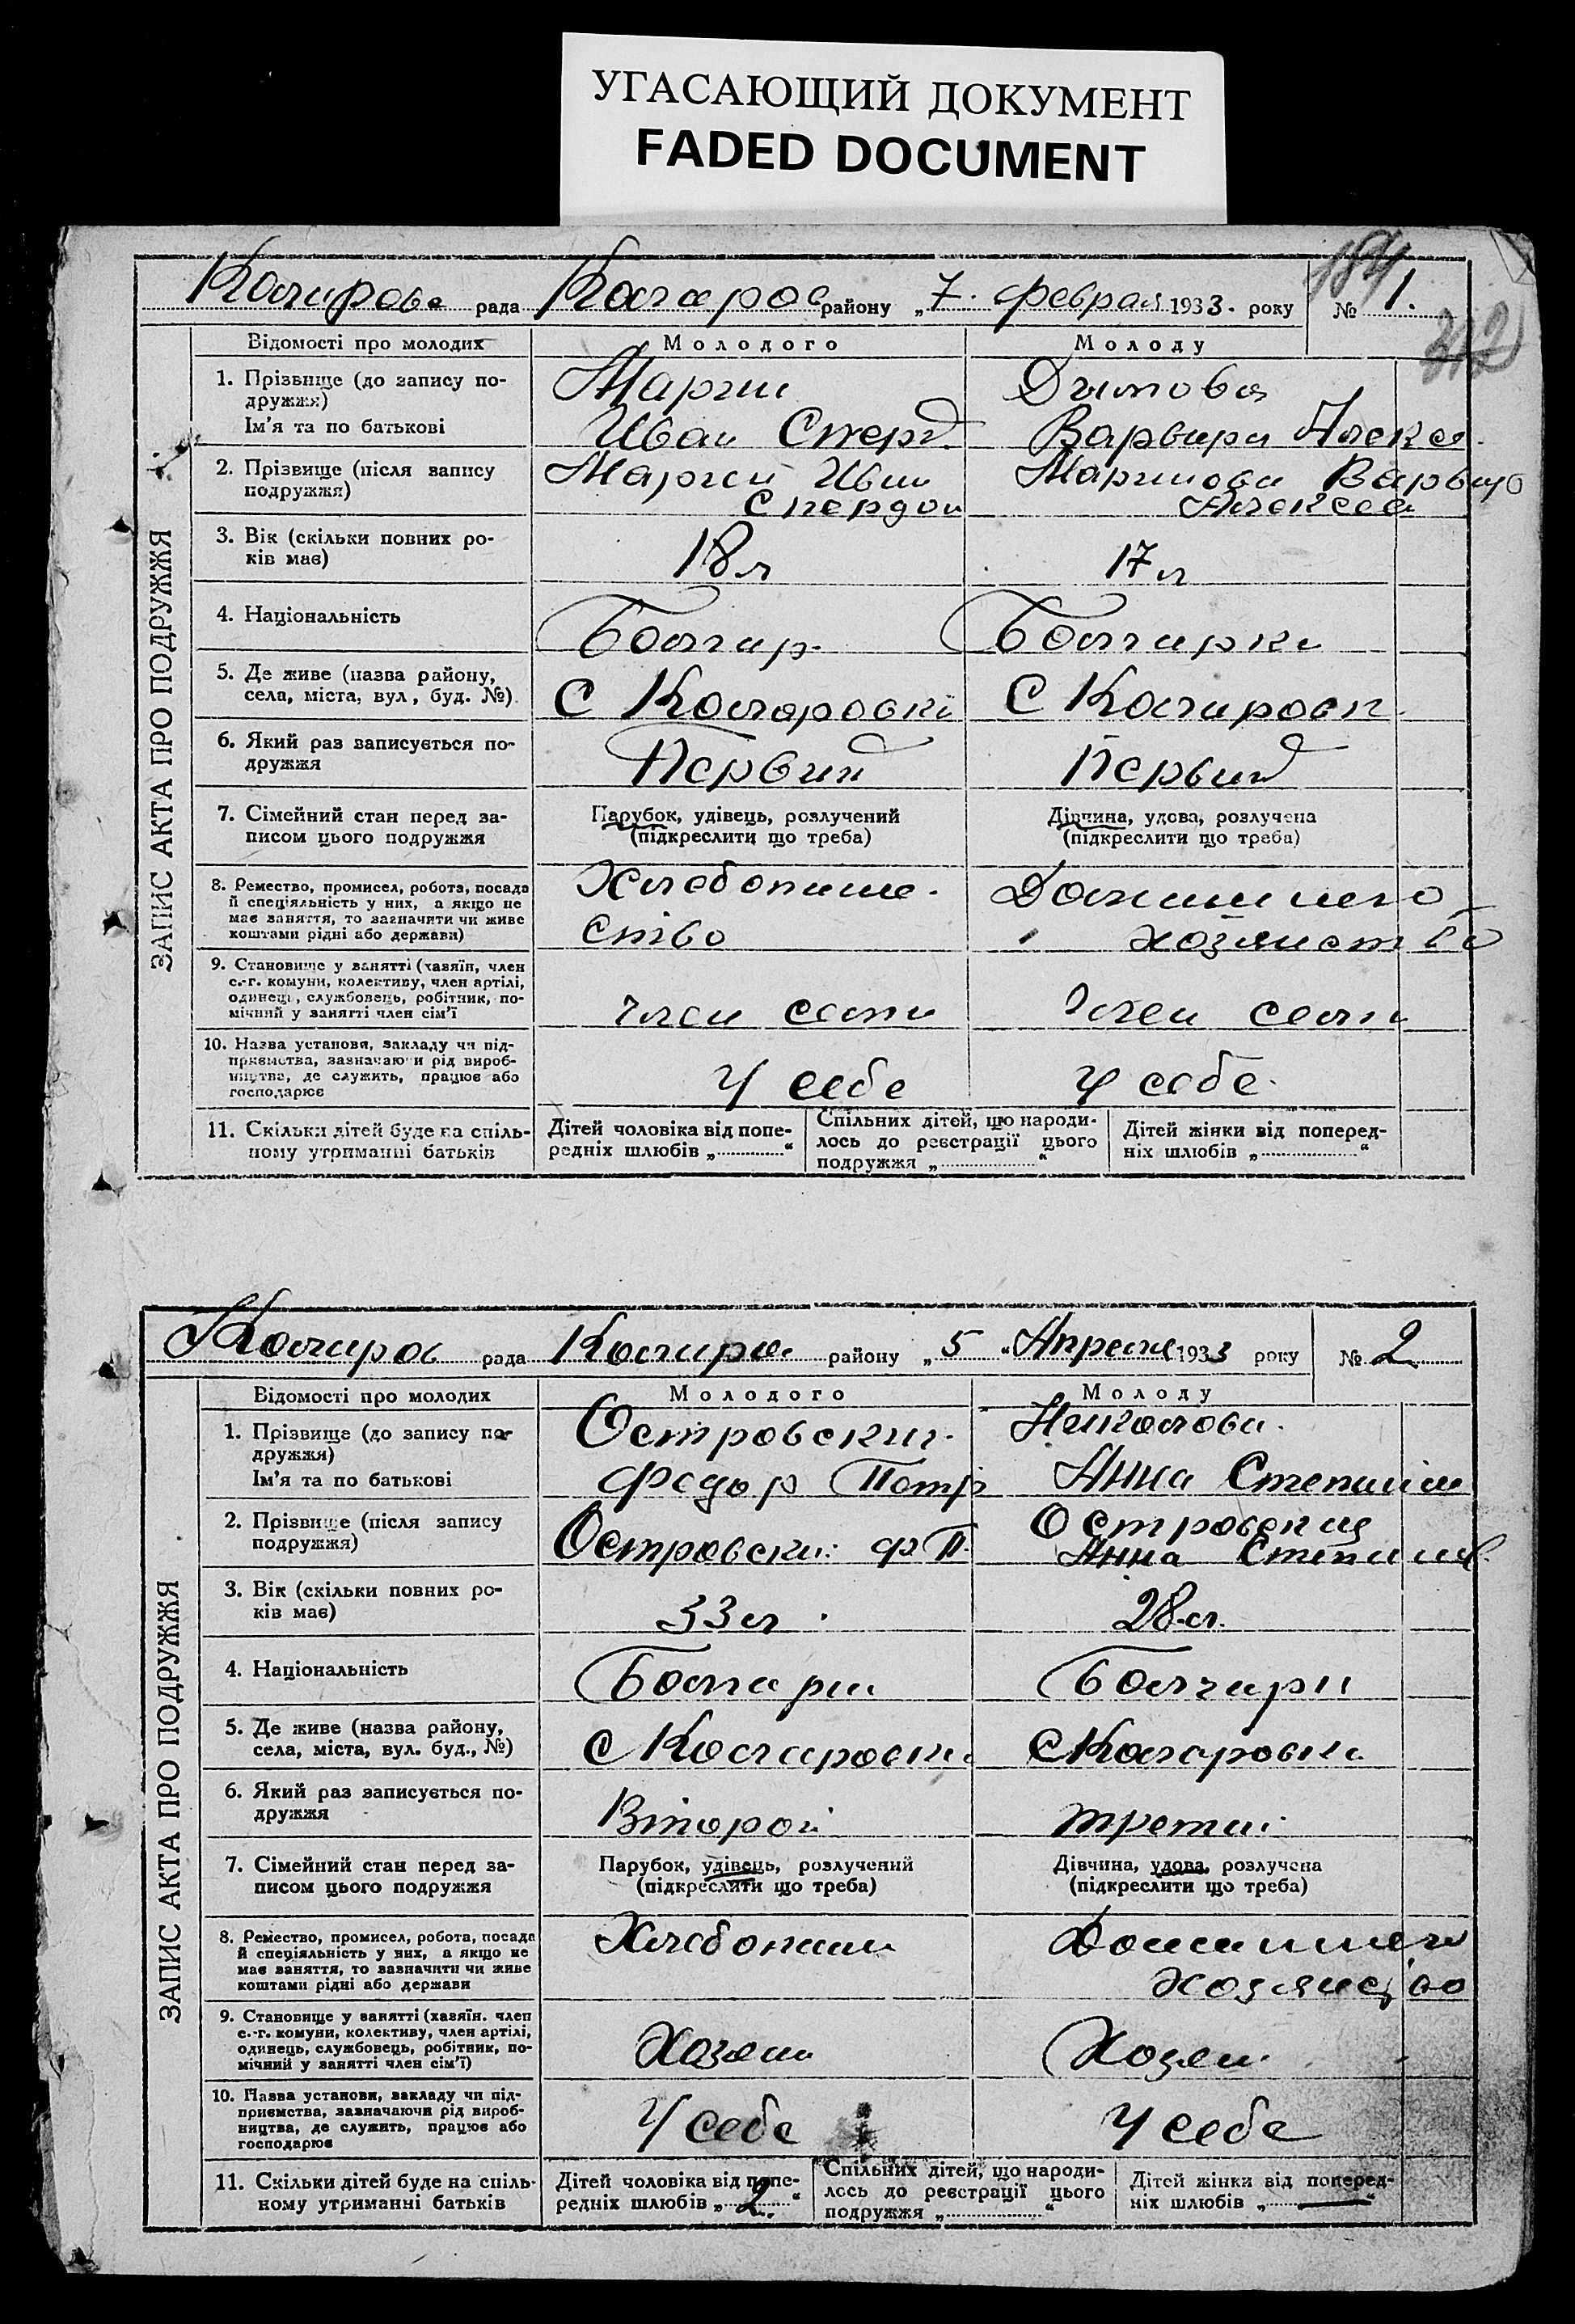 УГАСАЮЩИЙ ДОКУМЕНТ
FADED DOCUMENT
рада району „7. февраля 1933. року № 1.
184
312
ЗАПИС АКТА ПРО ПОДРУЖЖЯ
Відомості про молодих
Молодого
Молоду
1. Прізвище (до запису по-
дружжя)
Ім'я та по батькові
Маргин
Иван
Варвара Алексе
2. Прізвище (після запису
подружжя)
Маргин Иван
Маргинова Варвара
Алексее
3. Вік (скільки повних ро-
ків має)
18 л
17 л
4. Національність
Болгар.
Болгарка
5. Де живе (назва району,
села, міста, вул, буд. №)
С Колгаровка
С Колгаровк
6. Який раз записується по-
дружжя
Первий
Первий
7. Сімейний стан перед за-
писом цього подружжя
Парубок, удівець, розлучений
(підкреслити що треба)
Дівчина, удова, розлучена
(підкреслити що треба)
8. Ремество, промисел, робота, посада
й спеціяльність у них, а якщо не
має заняття, то зазначити чи живе
коштами рідні або держави)
Хлебопаше-
ство
Домашнего
хозяиство
9. Становище у занятті (хазяїн, член
с.-г. комуни, колективу, член артілі,
одинець, службовець, робітник, по-
мічний у занятті член сім'ї
член семи
член семи
10. Назва установи, закладу чи під-
приємства, зазначаючи рід вироб-
ництва, де служить, працює або
господарює
У себе
У себе.
11. Скільки дітей буде на спіль-
ному утриманні батьків
Дітей чоловіка від попе-
редніх шлюбів „ “
Спільних дітей, що народи-
лось до реєстрації цього
подружжя „ “
Дітей жінки від поперед-
ніх шлюбів „ “
рада району „5“ Апреля 1933 року № 2
ЗАПИС АКТА ПРО ПОДРУЖЖЯ
Відомості про молодих
Молодого
Молоду
1. Прізвище (до запису по-
дружжя)
Ім'я та по батькові
Островский
Федор Петр
Анна Степанов
2. Прізвище (після запису
подружжя)
Островски: Ф П.
Островская
Анна Степанов.
3. Вік (скільки повних ро-
ків має)
33 л
28 л.
4. Національність
Болгари
5. Де живе (назва району,
села, міста, вул. буд., №)
С Колгаровка
С Колгаровка
6. Який раз записується по-
дружжя
Второй
третий
7. Сімейний стан перед за-
писом цього подружжя
Парубок, удівець, розлучений
(підкреслити що треба)
Дівчина, удова, розлучена
(підкреслити що треба)
8. Ремество, промисел, робота, посада
й спеціяльність у них, а якщо не
має заняття, то зазначити чи живе
коштами рідні або держави
Хлебопаши
Домашнего
хозяиство
9. Становище у занятті (хазяїн. член
с.-г. комуни, колективу, член артілі,
одинець, службовець, робітник, по-
мічний у занятті член сім'ї)
Хозяин
Хозяи
10. Назва установи, закладу чи під-
приємства, зазначаючи рід вироб-
ництва, де служить, працює або
господарює
У себе
У себе
11. Скільки дітей буде на спіль-
ному утриманні батьків
Дітей чоловіка від попе-
редніх шлюбів „ 2. “
Спільних дітей, що народи-
лось до реєстрації цього
подружжя „ “
Дітей жінки від поперед-
ніх шлюбів „ — “